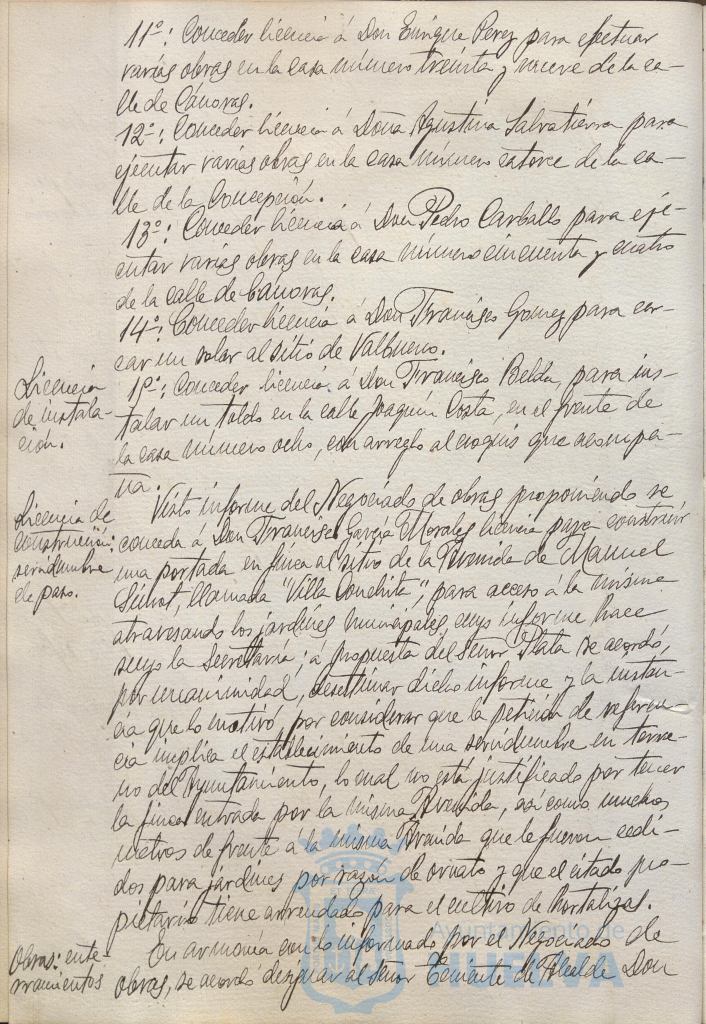 11º: Conceder licencia á Don Enrique Perez para efectuar
varias obras en la casa número treinta y nueve de la ca-
lle de Cánovas.
12º: Conceder licencia á Doña Agustina Salvatierra para
ejecutar varias obras en la casa número catorce de la ca-
lle de la Concepción.
13º: Conceder licencia á Don Pedro Carballo para eje-
cutar varias obras en la casa número cincuenta y cuatro
de la calle de Canovas.
14º: Conceder licencia á Don Francisco Gomez para cer-
car un solar al sitio de Valbueno.
Licencia
de instala-
ción.
1º: Conceder licencia á Don Francisco Belda, para ins-
talar un toldo en la calle Joaquín Costa, en el frente de
la casa número ocho, con arreglo al croquis que acompa-
ña.
Licencia de
construcción:
servidumbre
de paso.
Visto informe del Negociado de obras proponiendo se
conceda á Don Francisco García Morales licencia para construir
una portada en finca al sitio de la Avenida de Manuel
Siurot, llamada "Villa Conchita", para acceso á la misma
atravesando los jardines municipales, cuyo informe hace
suyo la Secretaría; á propuesta del Señor Plata se acordó,
por unanimidad, desestimar dicho informe y la instan-
cia que lo motivó, por considerar que la petición de referen-
cia implica el establecimiento de una servidumbre en terre-
no del Ayuntamiento, lo cual no está justificado por tener
la finca entrada por la misma Avenida, así como muchos
metros de frente á la misma Avenida que le fueron cedi-
dos para jardines por razón de ornato y que el citado pro-
pietario tiene arrendado para el cultivo de hortalizas.
Obras: ente-
rramientos
En armonía con lo informado por el Negociado de
obras, se acordó designar al Señor Teniente de Alcalde Don
Ayuntamiento de
HUELVA